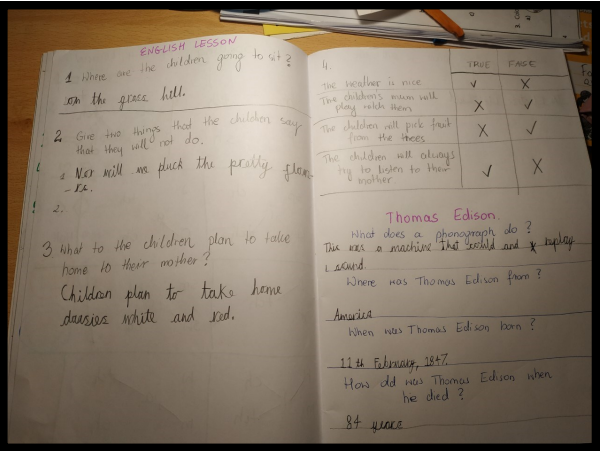 ENGLISH LESSON
1 Where are the children going to sit?
on the grass hell.
2 Give two things that the children say
that they will not do.
1 Nor will we pluck the pretty flow-
-rs.
2.
3 What to the children plan to take
home to their mother?
Children plan to take home
daisies white and red.
4.
TRUE FALSE
The weather is nice ✓ X
The children's mum will
play with theirs X ✓
The children will pick fruit
from the trees X ✓
The children will always
try to listen to their
mother ✓ X
Thomas Edison.
What does a phonograph do?
This was a machine that could and replay
sound.
Where was Thomas Edison from?
America
When was Thomas Edison born?
11 th February, 1847.
How old was Thomas Edison when
he died?
84 years